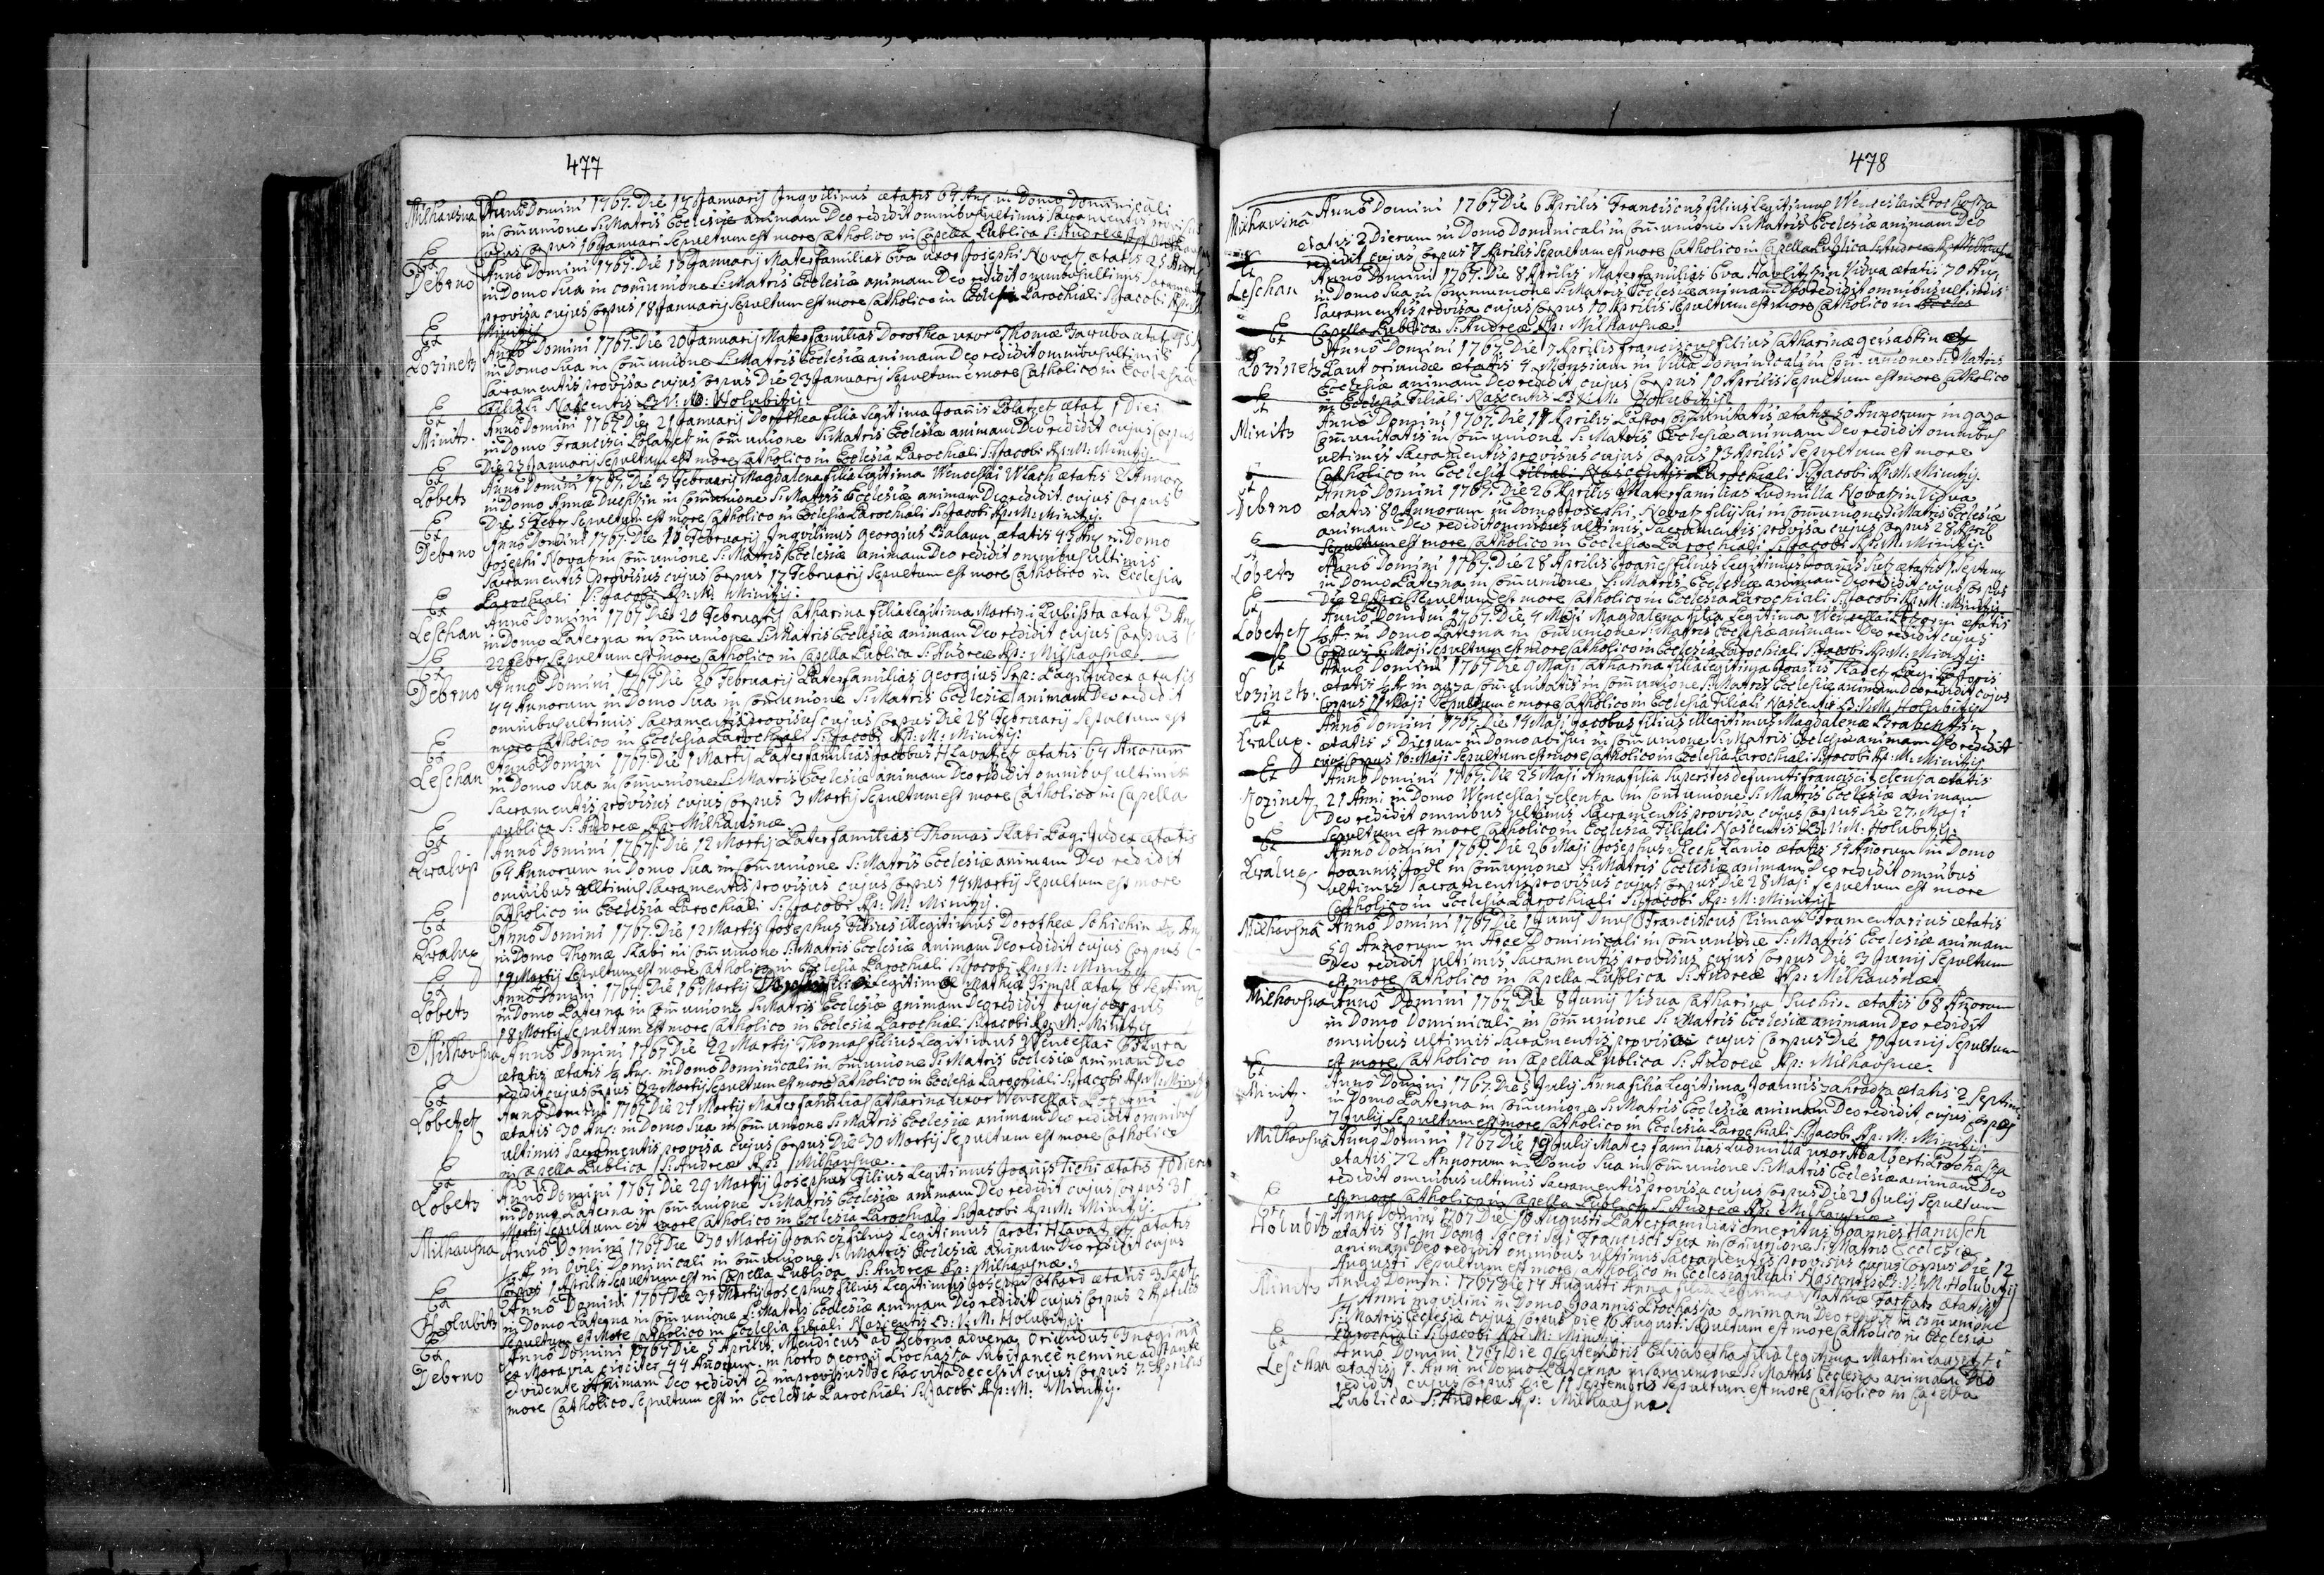 477
Milhausna Anno Domini 1767. Die 14 Januarij Inqvilinus ætatis 64 An; in Domo Dominicali
in com̃unione S: Matris Ecclesiæ animam Deo redidit omnibus ultimis Sacramentis provisus
cujus corpus 16 Januari Sepultum est more catholico in Capella Publica S: Andreæ Ap:
Et
Debrno Anno Domini 1767. Die 16 Januarij Materfamilias Eva uxor Josephi Novak ætatis 25
in Domo Sua in comunione S: Matris Ecclesiæ animam Deo redidit omnibus ultimis Sacramentis
provisa cujus Corpus 18 Januarij Sepultum est more Catholico in Ecclesia Parochiali S: Jacobi Ap: M:
Minitij
Et
Lozinetz Anno Domini 1767. Die 20 Januarij Materfamilias Dorothea uxor Thomæ ætat 45
in Domo Sua in Com̃unione S: Matris Ecclesiæ animam Deo redidit omnibus ultimis
Sacramentis provisa cujus Corpus Die 23 Januarij Sepultum e more Catholico in Ecclesia
Filiali Nascentis B: V: M: Holubitzij
Et
Minitz. Anno Domini 1767. Die 21 Januarij Dorothea filia Legitima Joañis ætat 1 Diei
in Domo Francisci in com̃unione S: Matris Ecclesiæ animam Deo redidit cujus Corpus
Die 23 Januarij Sepultum est more Catholico in Ecclesia Parochiali S: Jacobi Ap: M: Minitij.
Et
Lobetz Anno Domini 1767. Die 3 Februarij Magdalena filia Legitima Wenceslai Wlach ætatis 2 Annor
in Domo Annæ in Com̃unione S: Matris Ecclesiæ animam Deo redidit. cujus Corpus
Die 5 Febr Sepultum est more Catholico in Ecclesia Parochiali S: Jacobi Ap: M: Minitij.
Et
Debrno Anno Domini 1767. Die Februarij Inqvilinus Georgius ætatis 45 An; in Domo
Josephi Novak in Com̃unione S: Matris Ecclesiæ animam Deo redidit omnibus ultimis
Sacramentis provisus cujus Corpus 17 Februarij Sepultum est more Catholico in Ecclesia
Parochiali S: Jacobi Ap: M: Minitij.
Et
Leschan Anno Domini 1767 Die 20 Februarij Catharina filia Legitima Martini ætat 3 An
in Domo Paterna in com̃unione S: Matris Ecclesiæ animam Deo redidit cujus Corpus
22 Febr Sepultum est more Catholico in Capella Publica S: Andreæ Ap: Milhausnæ.
Et
Debrno Anno Domini 1767 Die 26 Februarij Paterfamilias Georgius Pagi Judex ætatis
44 Annorum in Domo Sua in Com̃unione S: Matris Ecclesiæ animam Deo redidit
omnibus ultimis Sacramentis provisus cujus Corpus Die 28 Februarij Sepultum est
more Catholico in Ecclesia Parochiali S: Jacobi Ap: M: Minitij:
Et
Leschan Anno Domini 1767. Die 1 Martij Paterfamilias Jacobus Hlavatzet ætatis 64 Annorum
in Domo Sua in Com̃unione S: Matris Ecclesiæ animam Deo redidit omnibus ultimis
Sacramentis provisus cujus Corpus 3 Martij Sepultum est more Catholico in Capella
Publica S: Andreæ Ap: Milhausnæ
Et
Kralup Anno Domini 1767. Die 12 Martij Pater familias Thomas Skabi Pagi Judex ætatis
64 Annorum in Domo Sua in com̃unione S: Matris Ecclesiæ animam Deo redidit
omnibus ultimis Sacramentis provisus cujus Corpus 14 Martij Sepultum est more
Catholico in Ecclesia Parochiali S: Jacobi Ap: M: Minitij.
Et
Kralup Anno Domini 1767. Die 12 Martij Josephus Filius illegitimus Dorotheæ
in Domo Thomæ Skabi in Com̃unione S: Matris Ecclesiæ animam Deo redidit cujus Corpus
14 Martij Sepultum est more Catholico in Ecclesia Parochiali S: Jacobi Ap: M: Minitij
Et
Lobetz Anno Domini 1767. Die 16 Martij Legitimæ Mathiæ ætat 6 Septim
in Domo Paterna in Com̃unione S: Matris Ecclesiæ animam Deo redidit cujus corpus
18 Martij Sepultum est more Catholico in Ecclesia Parochiali S: Jacobi Ap: M: Minitij
Milhausna Anno Domini 1767 Die 22 Martij Thomas filius Legitimus Wenceslai
ætatis ætatis An. in Domo Dominicali in Com̃unione S: Matris Ecclesiæ animam Deo
redidit cujus Corpus 23 Martij Sepultum est more Catholico in Ecclesia Parochiali S: Jacobi Ap: M: Minitij
Et
Lobetzetz Anno Domini 1767 Die 27 Martij Materfamilias Catharina uxor Wenceslai
ætatis 30 An: in Domo Sua in Com̃unione S: Matris Ecclesiæ animam Deo redidit omnibus
ultimis Sacramentis provisa cujus Corpus Die 30 Martij Sepultum est more Catholico
in Capella Publica S: Andreæ Ap: Milhausnæ.
Et
Lobetz Anno Domini 1767 Die 29 Martij Josephus Filius Legitimus Joañis Tichi ætatis 10 dier
in Domo Paterna in com̃unione S: Matris Ecclesiæ animam Deo redidit cujus Corpus 31
Martij Sepultum est more Catholico in Ecclesia Parochiali S: Jacobi Ap: M: Minitij.
Milhausna Anno Domini 1767 Die 30 Martij Joañes filius Legitimus Caroli Hlavatzet ætatis
in Civili Dominicali in com̃unione S: Matris Ecclesiæ animam Deo redidit cujus
Corpus 1 Aprilis Sepultum est in Capella Publica S: Andreæ Ap: Milhausnæ.
Et
Holubitz Anno Domini 1767 Die 31 Martij Josephus filius Legitimus Josephi ætatis 3 Sept
in Domo Paterna in Com̃unione S: Matris Ecclesiæ animam Deo redidit cujus Corpus 2 Aprilis
Sepultum est More Catholico in Ecclesia filiali Nascentis B: V: M. Holubitzij:
Et
Debrno Anno Domini 1767 Die 5 Aprilis Mendicus ad Debrno advena oriundus
ex Moravia circiter 44 Añorum. in horto Georgij Prochaska Subitanee nemine adstante
et vidente Animam Deo redidit et improvisus de hac vita decessit cujus Corpus 7 Aprilis
more Catholico Sepultum est in Ecclesia Parochiali S: Jacobi Ap: M: Minitij.
478
Milhausna Anno Domini 1767 Die 6 Aprilis Franciscus filius Legitimus Wenceslai Prochaska
ætatis 2 Dierum in Domo Dominicali in Com̃unione S: Matris Ecclesiæ animam Deo
redidit cujus Corpus 7 Aprilis Sepultum est more Catholico in Capella Publica S: Andreæ Ap: Milhausnæ
Et
Leschan Anno Domini 1767. Die 8 Aprilis Materfamilias Eva Havlitzkin Vidua ætatis 70 An;
in Domo Sua in Communione S: Matris Ecclesiæ animam Deo redidit omnibus ultimis
Sacramentis provisa cujus Corpus 10 Aprilis Sepultum est more Catholico in Eccles
Capella Publica S: Andreæ Ap: Milhausnæ
Et
Lozinetz Anno Domini 1767. Die 7 Aprilis franciscus filius Catharinæ
Laut oriundæ ætatis 4 Mensium in Villa Dominicali in Com̃unione S: Matris
Ecclesiæ animam Deo redidit cujus Corpus 10 Aprilis Sepultum est more Catholico
in Ecclesia Filiali Nascentis B: V: M. Holubitzij
Et
Minitz Anno Domini 1767. Die 11 Aprilis Pastor Communitatis ætatis 50 Annorum in gaza
Com̃unitatis in Com̃unione S: Matris Ecclesiæ animam Deo redidit omnibus
ultimis Sacramentis provisus cujus Corpus 13 Aprilis Sepultum est more
Catholico in Ecclesia filiali Nascentis Parochiali S: Jacobi Ap: M. Minitij.
Et
Debrno Anno Domini 1767. Die 26 Aprilis Materfamilias Ludmilla Novakin Vidua
ætatis 80 Annorum in Domo Josephi Novak filij Sui in Com̃unione S: Matris Ecclesiæ
animam Deo redidit omnibus ultimis Sacramentis provisa cujus Corpus 28 Aprilis
Sepultum est more Catholico in Ecclesia Parochiali S: Jacobi Ap: M: Minitij:
Et
Lobetz Anno Domini 1767. Die 28 Aprilis Joañes filius Legitimus Joañis ætatis 1 Septim
in Domo Paterna in Com̃unione S: Matris Ecclesiæ animam Deo redidit cujus Corpus
Die 29 Aprilis Sepultum est more Catholico in Ecclesia Parochiali S: Jacobi Ap: M: Minitij
Et
Lobetzetz Anno Domini 1767. Die 4 Maji Magdalena filia Legitima Wenceslai ætatis
in Domo Paterna in Com̃unione S: Matris Ecclesiæ animam Deo redidit cujus
Corpus Maji Sepultum est more Catholico in Ecclesia Parochiali S: Jacobi Ap: M: Minitij:
Et
Lozinetz. Anno Domini 1767 Die 9 Maji Catharina filia Legitima Joañis Pagi Pastoris
ætatis in gaza Com̃unitatis in Com̃unione S: Matris Ecclesiæ animam Deo redidit cujus
Corpus 11 Maji Sepultum e more Catholico in Ecclesia Filiali Nascentis B: V: M. Holubitzij
Et
Kralup. Anno Domini 1767. Die 14 Maji Jacobus filius illegitimus Magdalenæ
ætatis 5 Dierum in Domo in Com̃unione S: Matris Ecclesiæ animam Deo redidit
cujus Corpus 16. Maji Sepultum est more Catholico in Ecclesia Parochiali S: Jacobi Ap: M: Minitij
Et
Lozinetz Anno Domini 1767. Die 25 Maji Anna filia Superstes defuncti francisci Zelenka ætatis
21 Anni in Domo Wenceslai Zelenka in Com̃unione S: Matris Ecclesiæ animam
Deo redidit omnibus ultimis Sacramentis provisa cujus Corpus Die 27. Maji
Sepultum est more Catholico in Ecclesia Filiali Nascentis B: V: M: Holubitzij:
Et
Kralup Anno Domini 1767. Die 26 Maji Josephus Lanio ætatis 54 Añorum in Domo
Joannis in Com̃unione S: Matris Ecclesiæ animam Deo redidit omnibus
ultimis Sacramentis provisus cujus Corpus Die 28 Maji Sepultum est more
Catholico in Ecclesia Parochiali S: Jacobi Ap: M: Minitij
Milhausna Anno Domini 1767 Die 1 Junij Franciscus Frumentarius ætatis
59 Annorum in Arce Dominicali in Com̃unione S: Matris Ecclesiæ animam
Deo redidit ultimis Sacramentis provisus cujus Corpus Die 3 Junij Sepultum
est more Catholico in Capella Publica S: Andreæ Ap: Milhausnæ
Milhausna Anno Domini 1767 Die 8 Junij Vidua Catharina ætatis 68 Añorum
in Domo Dominicali in Com̃unione S: Matris Ecclesiæ animam Deo redidit
omnibus ultimis Sacramentis provisa cujus Corpus Die 10 Junij Sepultum
est more Catholico in Capella Publica S: Andreæ Ap: Milhausnæ.
Et
Minitz. Anno Domini 1767. Die 5 Julij Anna filia Legitima Joannis ætatis 2 Septim
in Domo Paterna in Com̃unione S: Matris Ecclesiæ animam Deo redidit, cujus Corpus
7 Julij Sepultum est more Catholico in Ecclesia Parochiali S: Jacobi Ap: M: Minitij:
Milhausna Anno Domini 1767 Die 19 Julij Materfamilias Ludmilla uxor Adalberti Prochaska
ætatis 72 Annorum in Domo Sua in Com̃unione S: Matris Ecclesiæ animam Deo
redidit omnibus ultimis Sacramentis provisa cujus Corpus Die 21 Julij Sepultum
est more Catholico in Capella Publica S: Andreæ Ap: Milhausnæ
Et
Holubitz Anno Domini 1767 Die 10 Augusti Paterfamilias emeritus Joannes Hanusch
ætatis 81 in Domo Soceri Sui Francisci in Com̃unione S: Matris Ecclesiæ
animam Deo redidit omnibus ultimis Sacramentis provisus cujus Corpus Die 12
Augusti Sepultum est more Catholico in Ecclesia filiali Nascentis B: V: M. Holubitzij
Minitz Anno Domini 1767 Die 14 Augusti Anna filia Legitima Mathiæ ætatis
Anni inqvilini in Domo Joannis Prochaska animam Deo redidit in com̃unione
S: Matris Ecclesiæ cujus Corpus Die 16 Augusti Sepultum est more Catholico in Ecclesia
Parochiali S: Jacobi Ap: M: Minitij
Et
Leschan Anno Domini 1767 Die 9 Septembris Elisabetha filia legitima Martini
ætatis 1. Anni in Domo Paterna in Com̃unione S: Matris Ecclesiæ animam Deo
redidit cujus Corpus Die 11 Septembris Sepultum est more Catholico in Capella
Publica S: Andreæ Ap: Milhausna